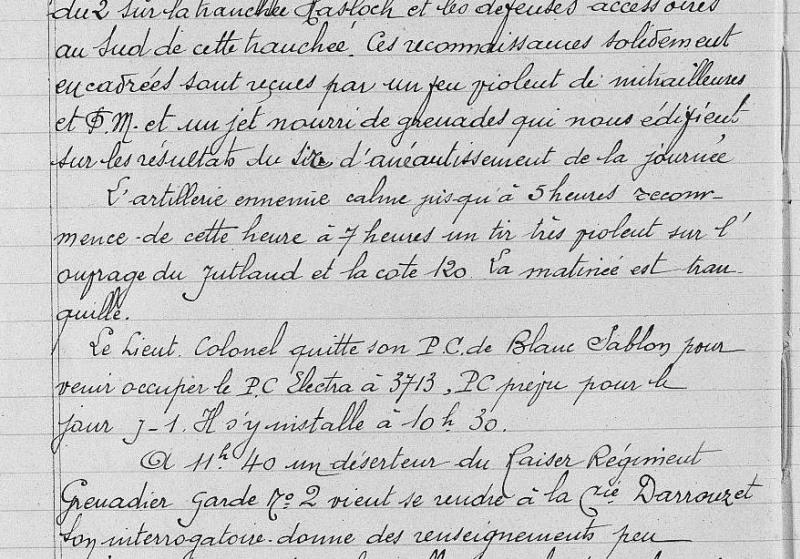 du 2 sur la tranchée Hasloch et les défenses accessoires
au sud de cette tranchée. Ces reconnaissances solidement
encadrées sont reçues par un feu violent de mitrailleuses
et F.M. et un jet nourri de grenades qui nous édifient
sur les résultats du tir d'anéantissement de la journée
L'artillerie ennemie calme jusqu'à 5 heures recom-
mence de cette heure à 7 heures un tir très violent sur l'
ouvrage du Jutland et la cote 120. La matinée est tran-
quille.
Le Lieut. Colonel quitte son P.C. de Blanc Sablon pour
venir occuper le P.C Electra à 3713, PC prévu pour le
jour J-1. Il s'y installe à 10h 30.
A 11h 40 un déserteur du Kaiser Régiment
Grenadier Garde No 2 vient se rendre à la Cie Darrouzet
Son interrogatoire donne des renseignements peu